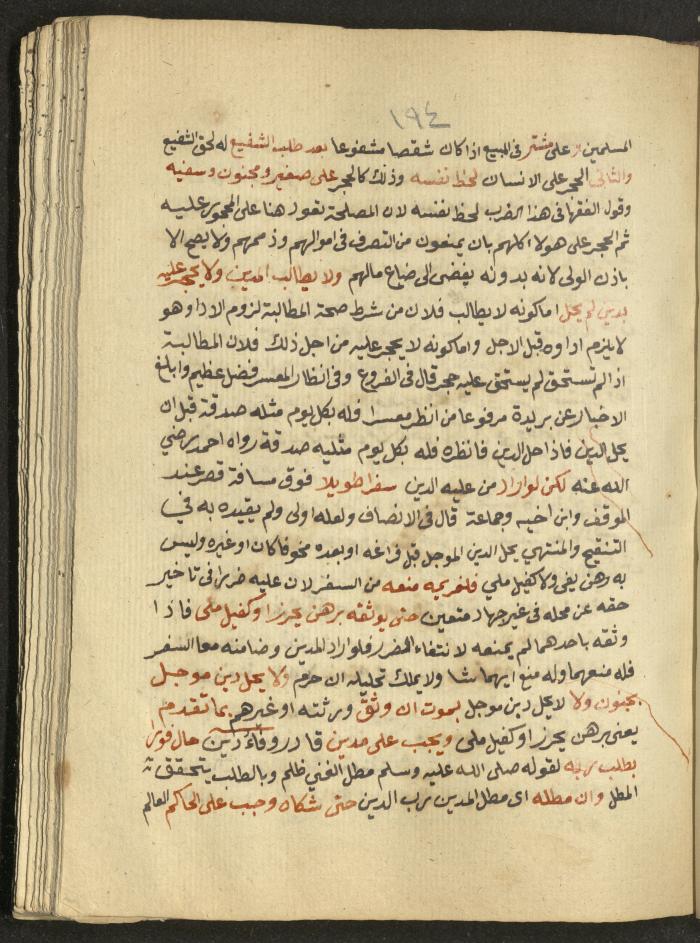 ١٩٤
المسلمين وعلى مشتر في المبيع اذا كان شقصا مشفوعا بعد طلب الشفيع له لحق الشفيع
والثاني الحجر على الانسان لحظ نفسه وذلك كالحجر على صغير ومجنون وسفيه
وقول الفقها في هذا الضرب لحظ نفسه لان المصلحة تعود هنا على المحجور عليه
ثم الحجر على هولاء كلهم بان يمنعون من التصرف في اموالهم وذممهم ولا يصح الا
باذن الولي لانه بدونه يفضى الى ضياع مالهم ولا يطالب المدين ولا يحجر عليه
بدين لم يحل اما كونه لا يطالب فلان من شرط صحة المطالبة لزوم الادا وهو
لا يلزم اداوه قبل الاجل واما كونه لا يحجر عليه من اجل ذلك فلان المطالبة
اذا لم تستحق لم يستحق عليه حجر قال في الفروع وفي انظار المعسر فضل عظيم وابلغ
الاخبار عن بريدة مرفوعا من انظر معسرا فله بكل يوم مثله صدقة قبل ان
يحل الدين فاذا حل الدين فانظره فله بكل يوم مثليه صدقة رواه احمد رضي
الله عنه لكن لو اراد من عليه الدين سفرا طويلا فوق مسافة قصر عند
الموفق وابن اخيه وجماعة قال في الانصاف ولعله اولى ولم يقيده به في
التنقيح والمنتهي يحل الدين الموجل قبل فراغه او بعده مخوفا كان او غيره وليس
به رهن يفي ولا كفيل ملي فلغريمه منعه من السفر لان عليه ضررا في تاخير
حقه عن محله في غير جهاد متعين حتى يوثقه برهن يحرز او كفيل ملي فاذا
وثقه باحدهما لم يمنعه لانتفاء الضرر فلو اراد المدين وضامنه معا السفر
فله منعهما وله منع ايهما شا ولا يملك تحليله ان حرم ولا يحل دين موجل
بجنون ولا لا يحل دين موجل بموت ان وثق ورثته او غيرهم بما تقدم
يعنى برهن يحرز او كفيل ملي ويجب على مدين قادر وفاء دين حال فورا
بطلب ربه لقوله صلى الله عليه وسلم مطل الغني ظلم وبالطلب يتحقق
المطل وان مطله اى مطل المدين رب الدين حتى شكاه وجب على الحاكم العالم